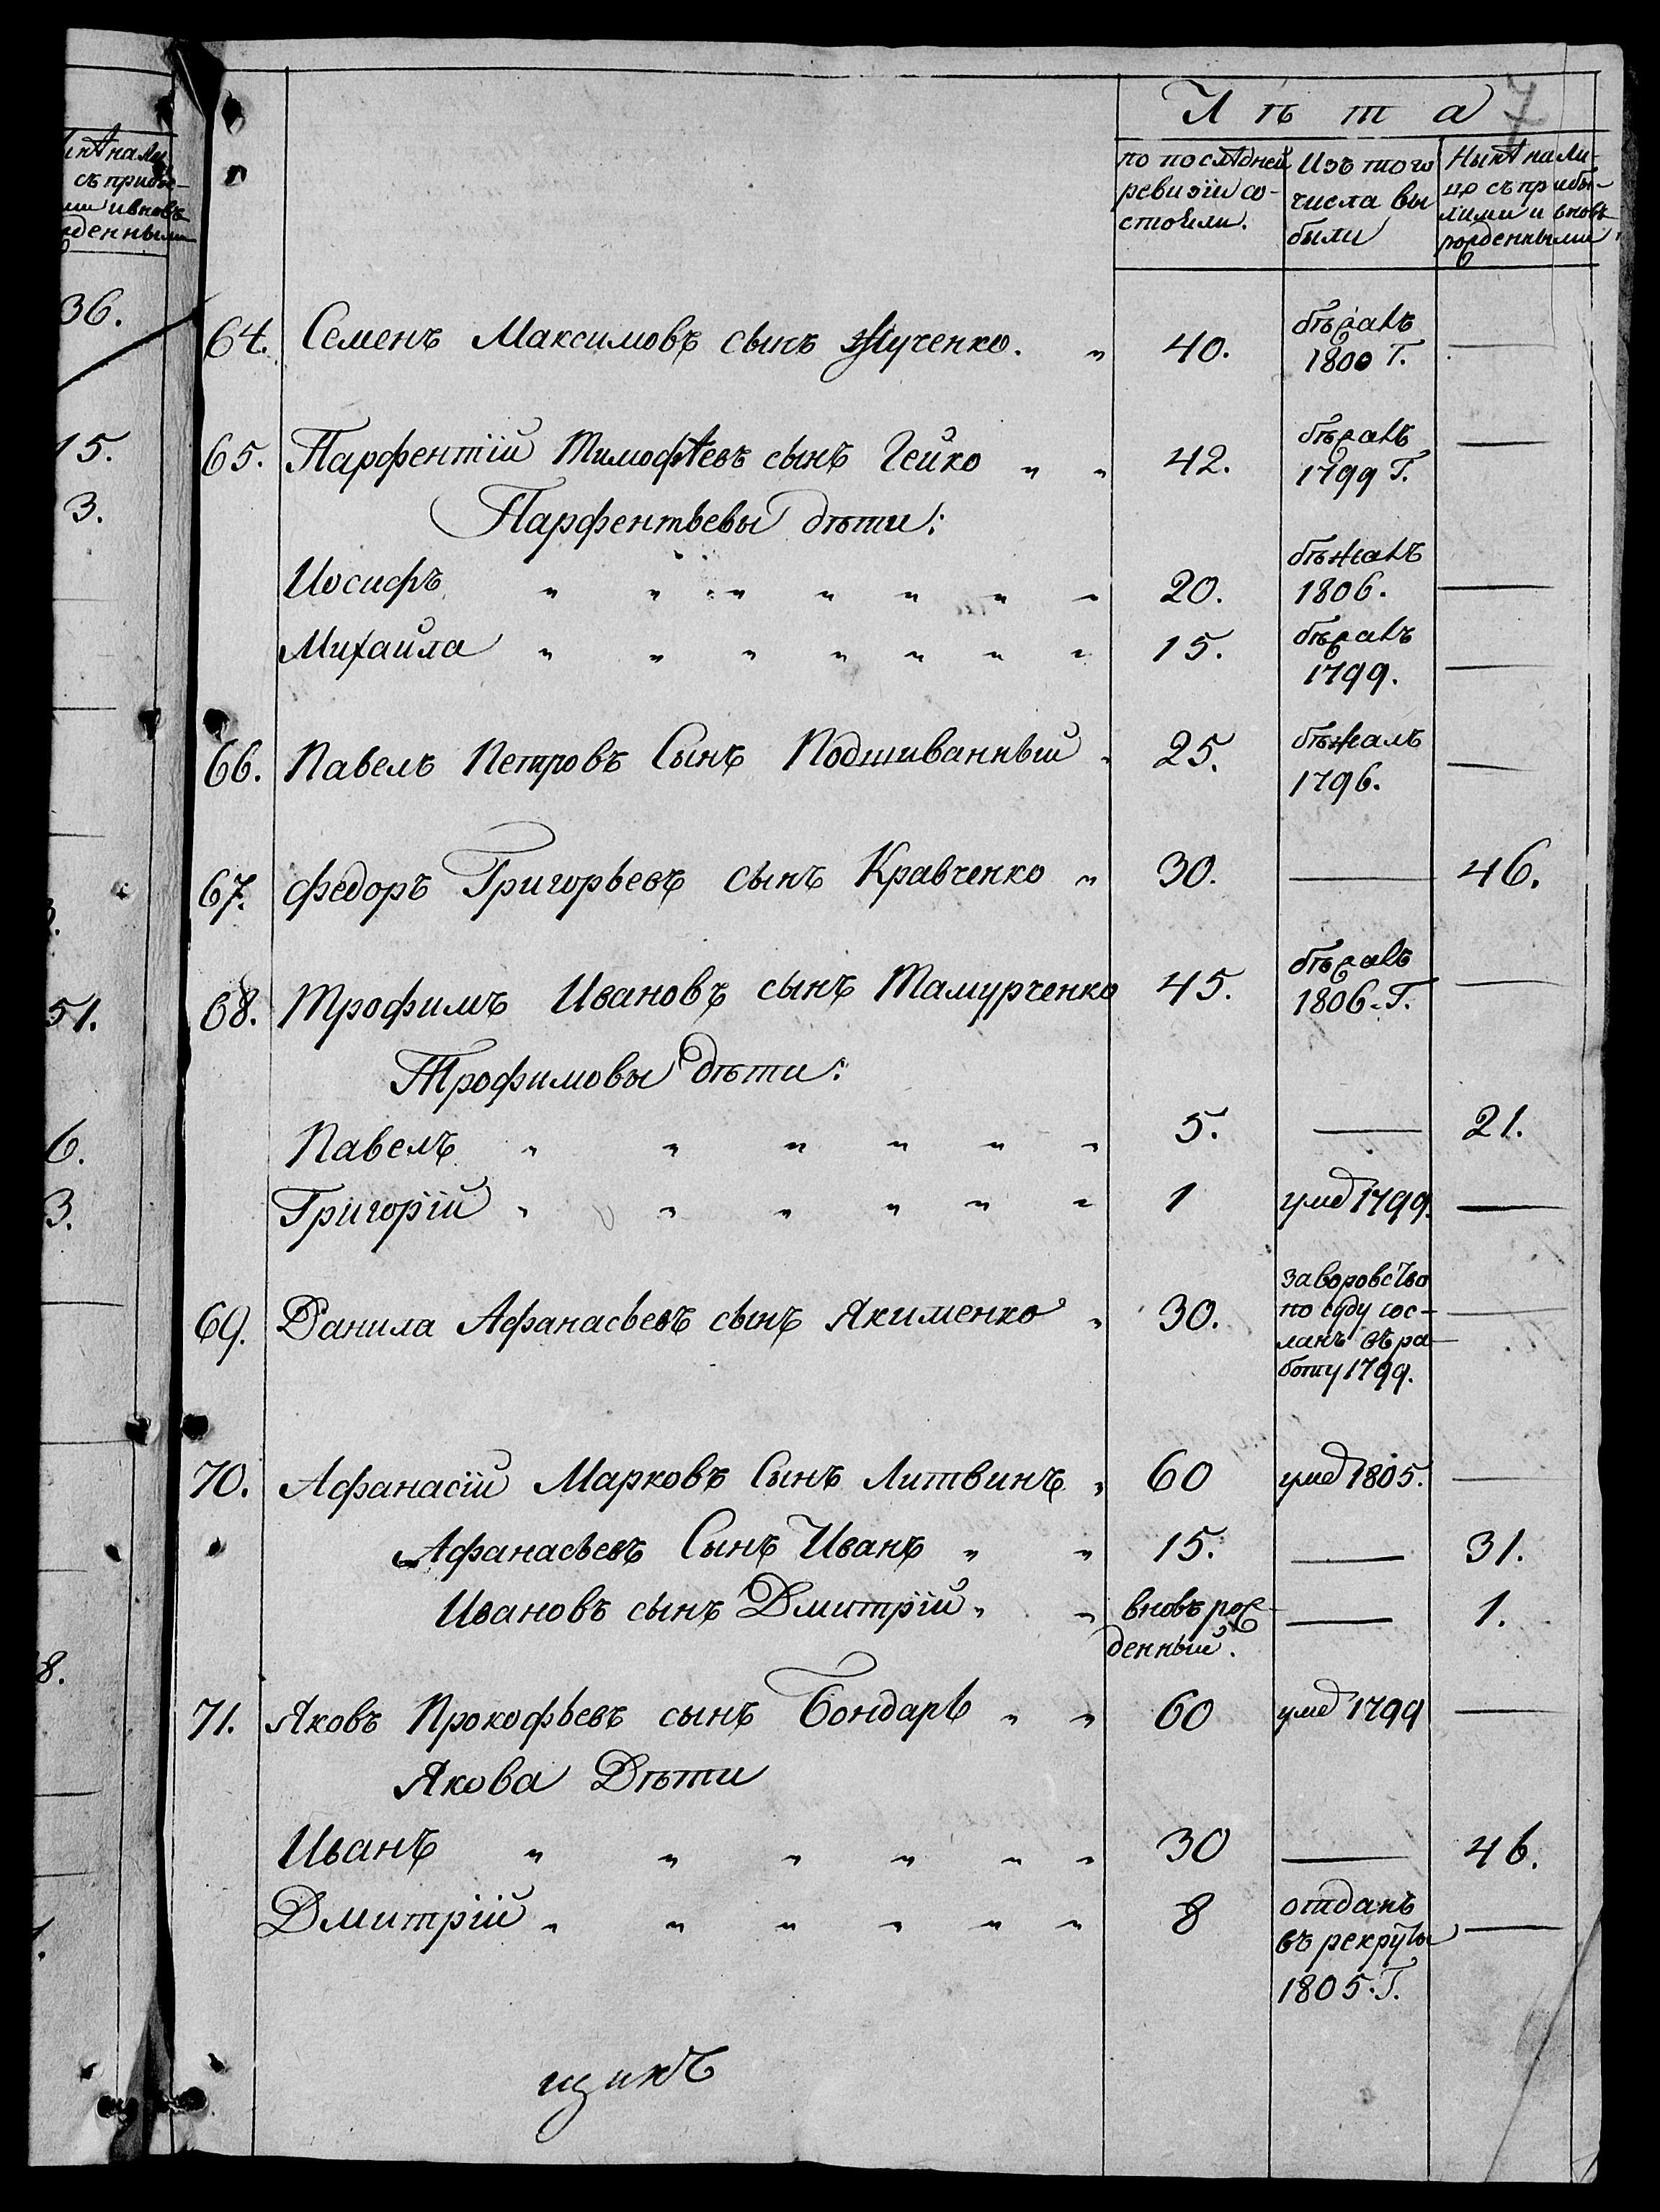 Лѣта 7
по послѣдней ревизіи состоѧли. Изъ того числа выбыли Нынѣ на лицо съ прибылими и вновь рожденными
64. Семенъ Максимовъ сынъ Жученко. „ 40. бѣжалъ 1800 Г. —
65. Парфентій Тимофѣевъ сынъ Гейко „ „ 42. бѣжалъ 1799 Г. —
Парфентьевы дѣти:
Иосифъ „ „ „ „ „ „ „ 20. бѣжалъ 1806. —
Михайла „ „ „ „ „ „ „ 15. бѣжалъ 1799. —
66. Павелъ Петровъ Сынъ Подшиванный „ 25. бѣжалъ 1796. —
67. Федоръ Григорьевъ сынъ Кравченко „ 30. — 46.
68. Трофимъ Ивановъ сынъ Тамурченко 45. бѣжалъ 1806. Г. —
Трофимовы дѣти:
Павелъ „ „ „ „ „ „ 5. — 21.
Григорій „ „ „ „ „ „ 1 умеʼ 1799. —
69. Данила Афанасьевъ сынъ Якименко „ 30. за воровство по суду сосланъ въ работу 1799. —
70. Афанасій Марковъ Сынъ Литвинъ „ 60 умеʼ 1805. —
Афанасьевъ Сынъ Иванъ „ „ 15. — 31.
Ивановъ сынъ Дмитрій „ „ вновь рожденный. — 1.
71. Яковъ Прокофьевъ сынъ Бондарь „ „ 60 умеʼ 1799 —
Якова Дѣти
Иванъ „ „ „ „ „ „ 30 — 46.
Дмитрій „ „ „ „ „ „ 8 отданъ въ рекруты 1805. Г. —
щикъ